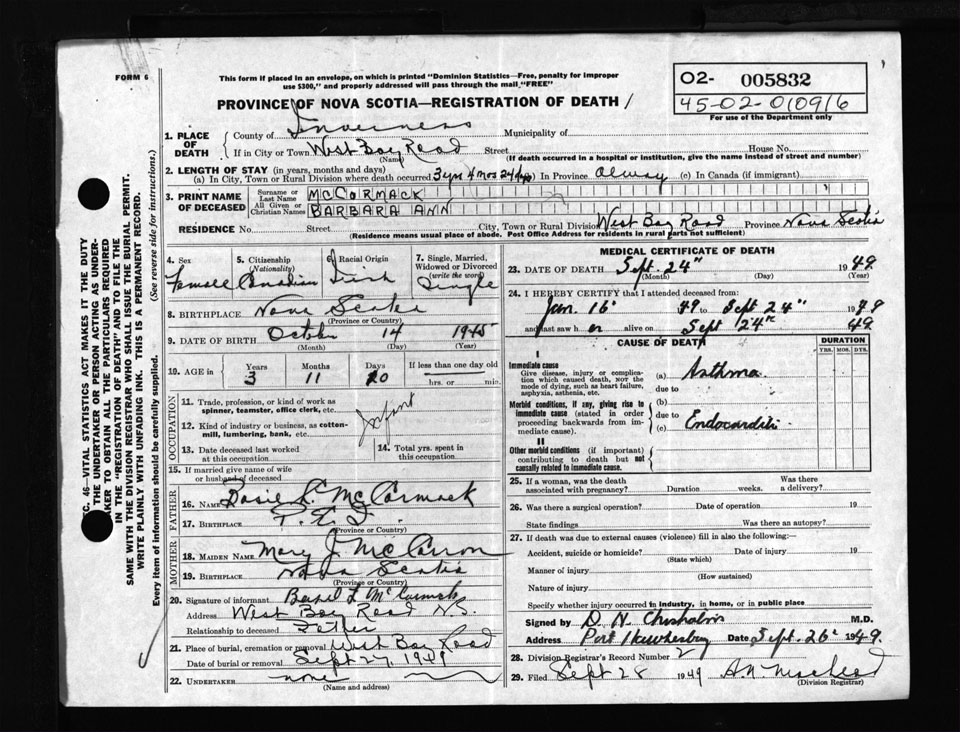 FORM 6
This form if placed in an envelope, on which is printed "Dominion Statistics—Free, penalty for improper
use $300," and properly addressed will pass through the mail "FREE"
PROVINCE OF NOVA SCOTIA—REGISTRATION OF DEATH
O2- 005832
45-02-010916
For use of the Department only
1. PLACE OF DEATH
County of Inverness Municipality of
If in City or Town West Bay Road Street House No.
(Name) (If death occurred in a hospital or institution, give the name instead of street and number)
2. LENGTH OF STAY (in years, months and days)
(a) In City, Town or Rural Division where death occurred 3 yrs 4 mos 24 In Province Alway (c) In Canada (if immigrant)
3. PRINT NAME OF DECEASED
Surname or Last Name McCORMACK
All Given or Christian Names BARBARA ANN
RESIDENCE No. Street City, Town or Rural Division West Bay Road Province Nova Scotia
(Residence means usual place of abode. Post Office Address for residents in rural parts not sufficient)
4. Sex Female
5. Citizenship (Nationality) Canadian
6. Racial Origin Irish
7. Single, Married, Widowed or Divorced (write the word) Single
8. BIRTHPLACE Nova Scotia
(Province or Country)
9. DATE OF BIRTH October 14 1945
(Month) (Day) (Year)
10. AGE in Years Months Days If less than one day old
3 11 10 hrs. or min.
OCCUPATION
11. Trade, profession, or kind of work as spinner, teamster, office clerk, etc.
12. Kind of industry or business, as cotton-mill, lumbering, bank, etc.
Infant
13. Date deceased last worked at this occupation
14. Total yrs. spent in this occupation
15. If married give name of wife or husband of deceased
FATHER
16. NAME L. McCormack
17. BIRTHPLACE P. E. I.
(Province or Country)
MOTHER
18. MAIDEN NAME Mary J. McCarron
19. BIRTHPLACE Nova Scotia
(Province or Country)
20. Signature of informant Basil L McCormack
Address West Bay Road N.S.
Relationship to deceased Father
21. Place of burial, cremation or removal West Bay Road
Date of burial or removal Sept 27, 1949
22. UNDERTAKER none
(Name and address)
MEDICAL CERTIFICATE OF DEATH
23. DATE OF DEATH Sept. 24" 1949
(Month) (Day) (Year)
24. I HEREBY CERTIFY that I attended deceased from:
Jan. 16 49 to Sept 24" 1949
and last saw h er alive on Sept 24" 49
CAUSE OF DEATH
DURATION
YRS. MOS. DYS.
I
Immediate cause
Give disease, injury or complication which caused death, nor the mode of dying, such as heart failure, asphyxia, asthenia, etc.
(a) Asthma
due to
Morbid conditions, if any, giving rise to immediate cause (stated in order proceeding backwards from immediate cause).
(b)
due to
(c) Endocarditis
II
Other morbid conditions (if important) contributing to death but not causally related to immediate cause.
25. If a woman, was the death associated with pregnancy? Duration weeks. Was there a delivery?
26. Was there a surgical operation? Date of operation 19
State findings Was there an autopsy?
27. If death was due to external causes (violence) fill in also the following:—
Accident, suicide or homicide? Date of injury 19
(State which)
Manner of injury
(How sustained)
Nature of injury
Specify whether injury occurred in industry, in home, or in public place
Signed by D. N. Chisholm M.D.
Address Port Hawkesbury Date Sept. 26 1949.
28. Division Registrar's Record Number 2
29. Filed Sept 28 1949 A.N. MacLeod
(Division Registrar)
C. 46—VITAL STATISTICS ACT MAKES IT THE DUTY
THE UNDERTAKER OR PERSON ACTING AS UNDER-
TAKER TO OBTAIN ALL THE PARTICULARS REQUIRED
IN THE "REGISTRATION OF DEATH" AND TO FILE THE
SAME WITH THE DIVISION REGISTRAR WHO SHALL ISSUE THE BURIAL PERMIT.
WRITE PLAINLY WITH UNFADING INK. THIS IS A PERMANENT RECORD.
Every item of information should be carefully supplied. (See reverse side for instructions.)